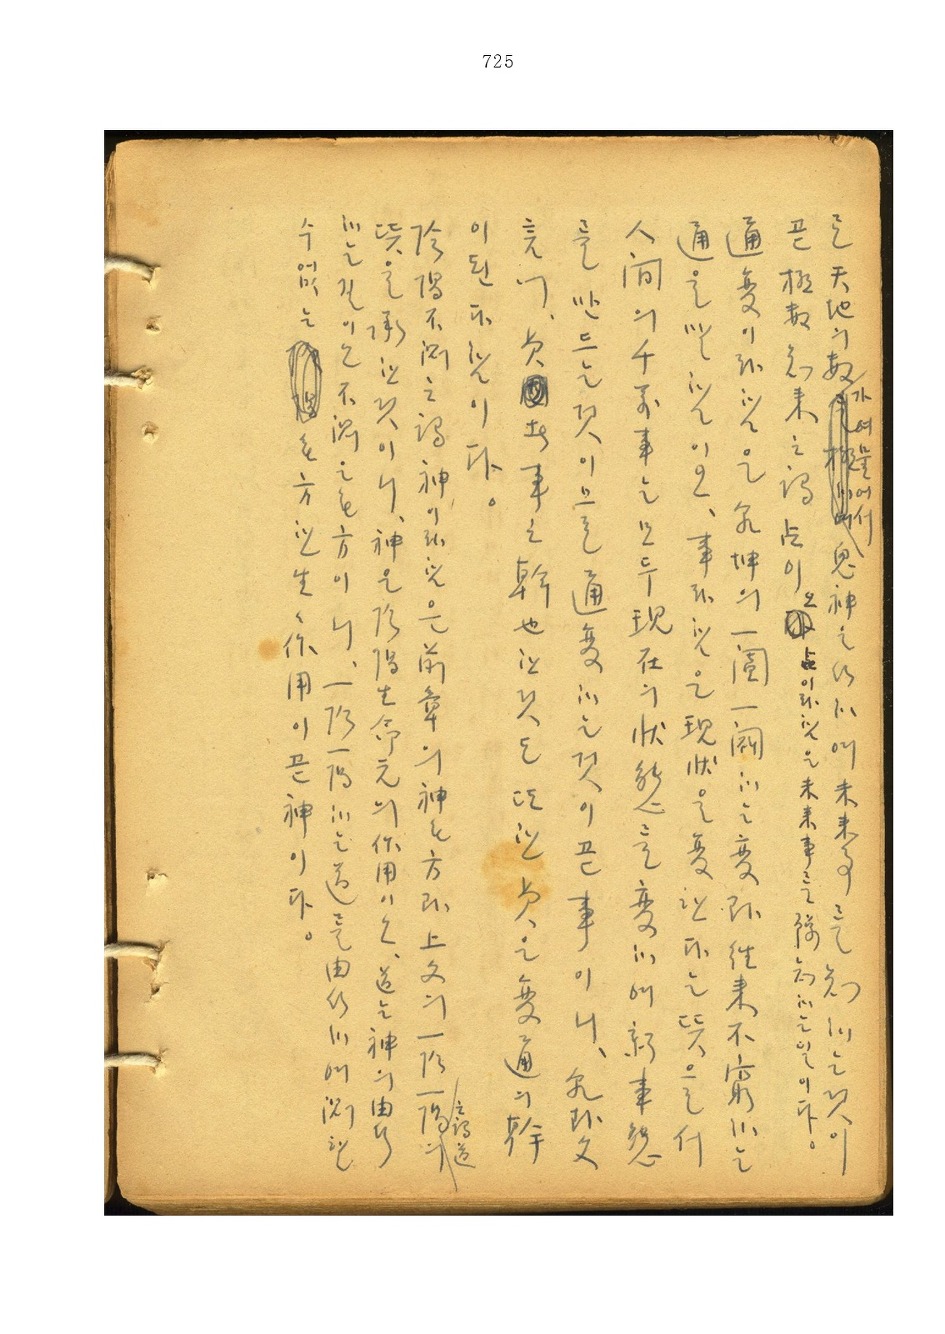 725
로 天地의 數가 여물어서 鬼神之行하며 未來事를 知하는 것이
곧 極數知來之謂占이오 占이라 함은 未來事를 豫知하는 일이다。
通變이라 함은 乾坤의 一闔一闢하는 變과 往來不窮하는
通을 말함이오、事라 함은 現狀을 變한다는 뜻으로서
人間의 千萬事는 모두 現在의 狀態를 變하며 新事態
를 만드는 것이므로 通變하는 것이 곧 事이니、乾卦文
言에、貞 者 事之幹也 한 것도 또한 貞은 變通의 幹
이 된다 함이다。
陰陽不測之謂神이라 함은 前章의 神无方과 上文의 一陰一陽之謂道의
뜻을 承한 것이니、神은 陰陽生命元의 作用이오、道는 神의 由行
하는 길이오 不測은 无方이니、一陰一陽하는 道를 由行하며 測할
수 없는 无方한 生生作用이 곧 神이다。